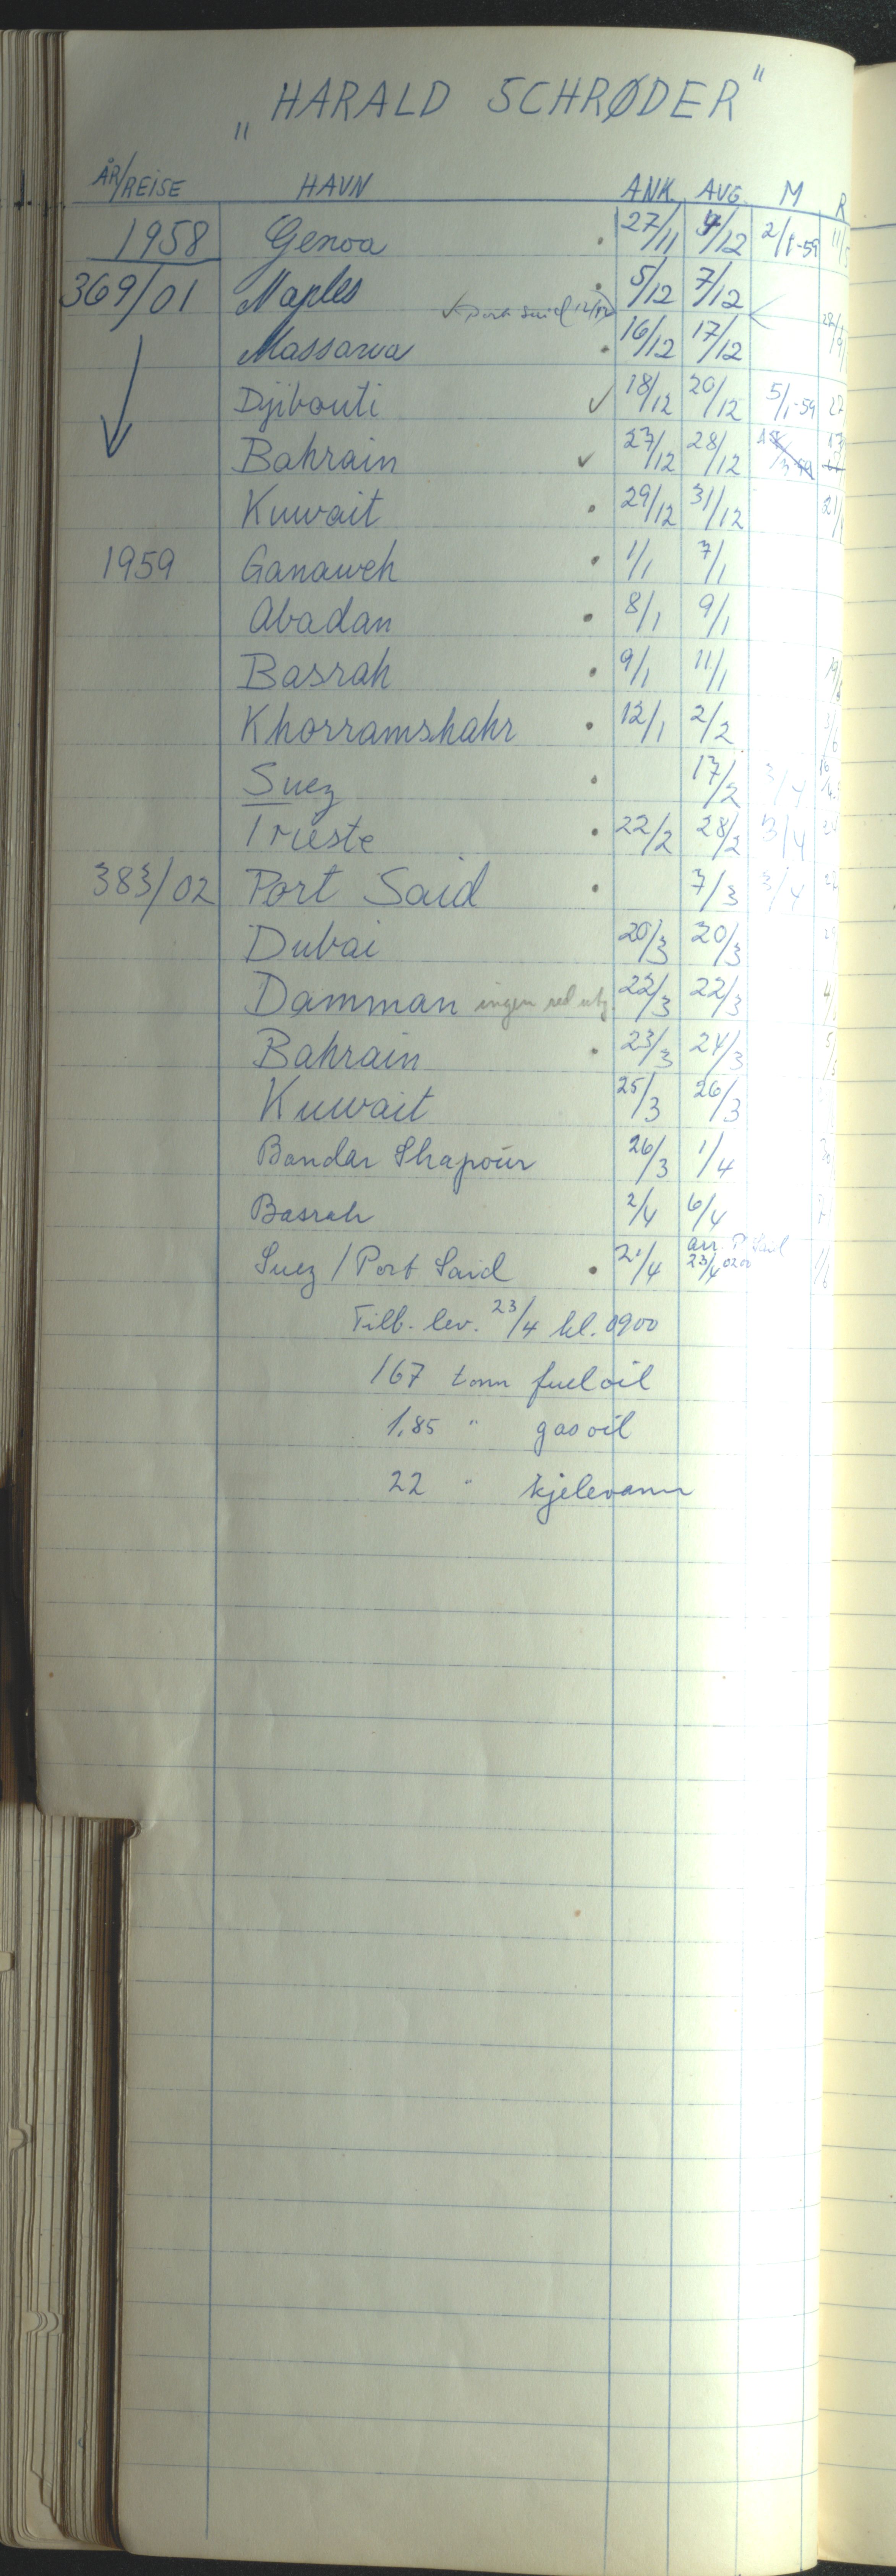 „HARALD SCHRØDER"
ÅR/REISE HAVN ANK. AVG. M R
1958 Genoa . 27/11 4/12 2/1-59
369/01 Naples . 5/12 7/12
✓ Port Said
Massawa . 16/12 17/12
Djibouti ✓ 18/12 20/12 5/1-59 27
Bahrain ✓ 27/12 28/12
Kuwait . 29/12 31/12
1959 Ganaweh . 1/1 7/1
Abadan . 8/1 9/1
Basrah . 9/1 11/1
Khorramshahr . 12/1 2/2
Suez . 17/2 3/4
Trieste . 22/2 28/2 3/4
383/02 Port Said . 7/3 3/4
Dubai 20/3 20/3
Damman ingen 22/3 22/3
Bahrain . 23/3 24/3
Kuwait 25/3 26/3
Bandar Shapour 26/3 1/4
Basrah 2/4 6/4
arr. P. Said
Suez / Port Said . 23/4 0200
Tilb. lev. 23/4 kl. 0900
167 tonn fueloil
1,85 " gasoil
22 " kjelevann